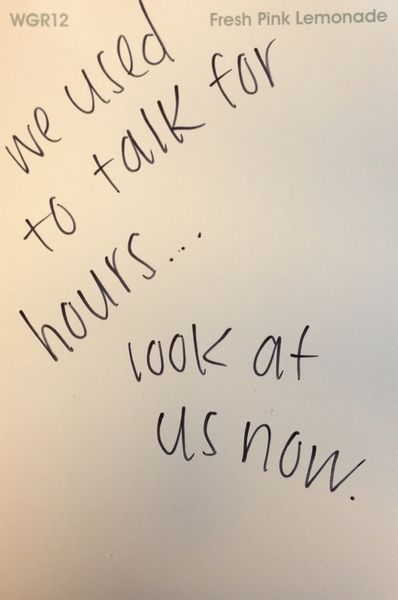 WGR12
Fresh Pink Lemonade
we used
to talk for
hours...
look at
us now.